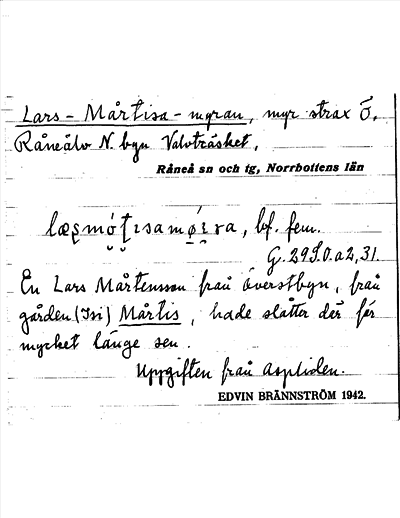 Lars-Mårtisa-myran, myr strax Ö.
Råneälv N. byn Valvträsket.
Råneå sn och tg, Norrbottens län
bf. fem.
G. 29
En Lars Mårtensson från Överstbyn, från
gården (Isi) Mårtis, hade slåtter där för
mycket länge sen.
Uppgiften från Aspliden.
EDVIN BRÄNNSTRÖM 1942.